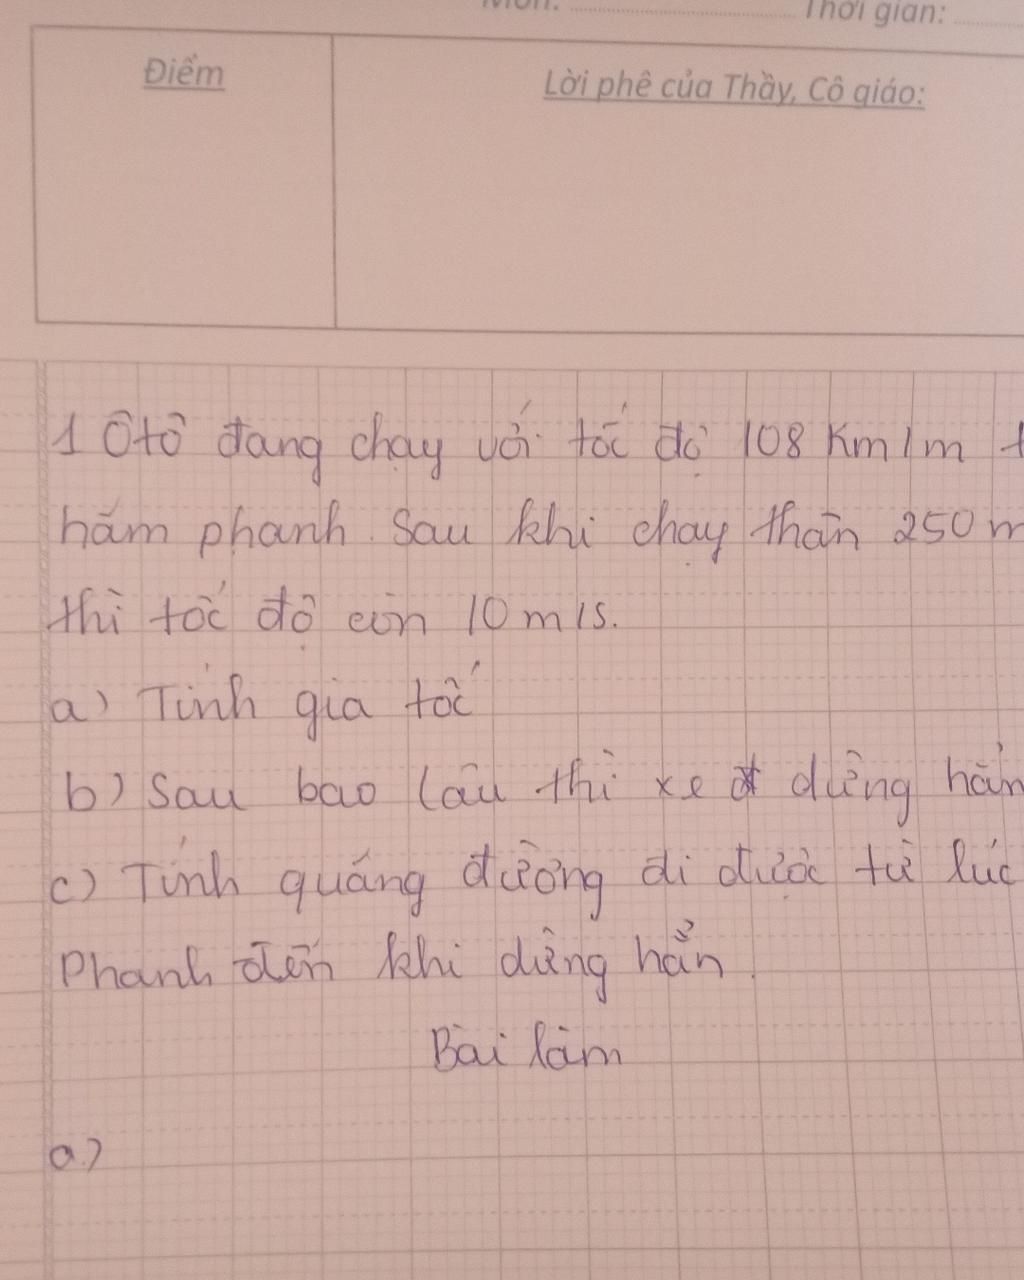 Môn: ............ Thời gian: ......
Điểm
Lời phê của Thầy, Cô giáo:
1 Ôtô đang chạy với tốc độ 108 Km/m
hãm phanh. Sau khi chạy thên 250 m
thì tốc độ còn 10 m/s.
a) Tính gia tốc
b) Sau bao lâu thì xe dừng hẳn
c) Tính quáng đường đi được từ lúc
Phanh đến khi dừng hẳn.
Bài làm
a)